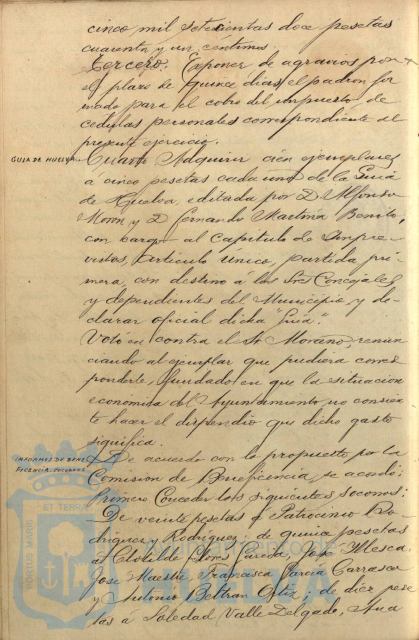 cinco mil setecientas doce pesetas
cuarenta y un céntimos
Tercero. Exponer de agravios por
el plazo de quince dias el padron for
mado para el cobro del impuesto de
cedulas personales correspondiente al
presente ejercicio.
GUIA DE HUELVA
Cuarto Adquirir cien ejemplares
á cinco pesetas cada uno de la Guia
de Huelva, editada por D. Alfonso
Moron y D. Fernando Martina Benito,
con cargo al Capítulo de Impre-
vistos, Artículo Unico, partida pri
mera, con destino á los Sres Concejales
y dependientes del Municipio y de-
clarar oficial dicha "Guia".
Votó en contra el Sr Moreno, renun
ciando al ejemplar que pudiera corres
ponderle, fundado en que la situacion
economica del Ayuntamiento no consien
te hacer el dispendio que dicho gasto
significa.
INFORMES DE BENE
FICENCIA. SOCORROS
De acuerdo con lo propuesto por la
Comision de Beneficencia, se acordó:
Primero Conceder los siguientes socorros:
De veinte pesetas á Patrocinio Ro
driguez y Rodriguez; de quince pesetas
á Clotilde Flores Casado, José Illesca,
José Maestre, Francisca Garcia Carrasco
y Antonio Beltran Ortiz; de diez pese
tas á Soledad Valle Delgado, Ana
PORTUS MARIS
ET TERRAE
HUELVA